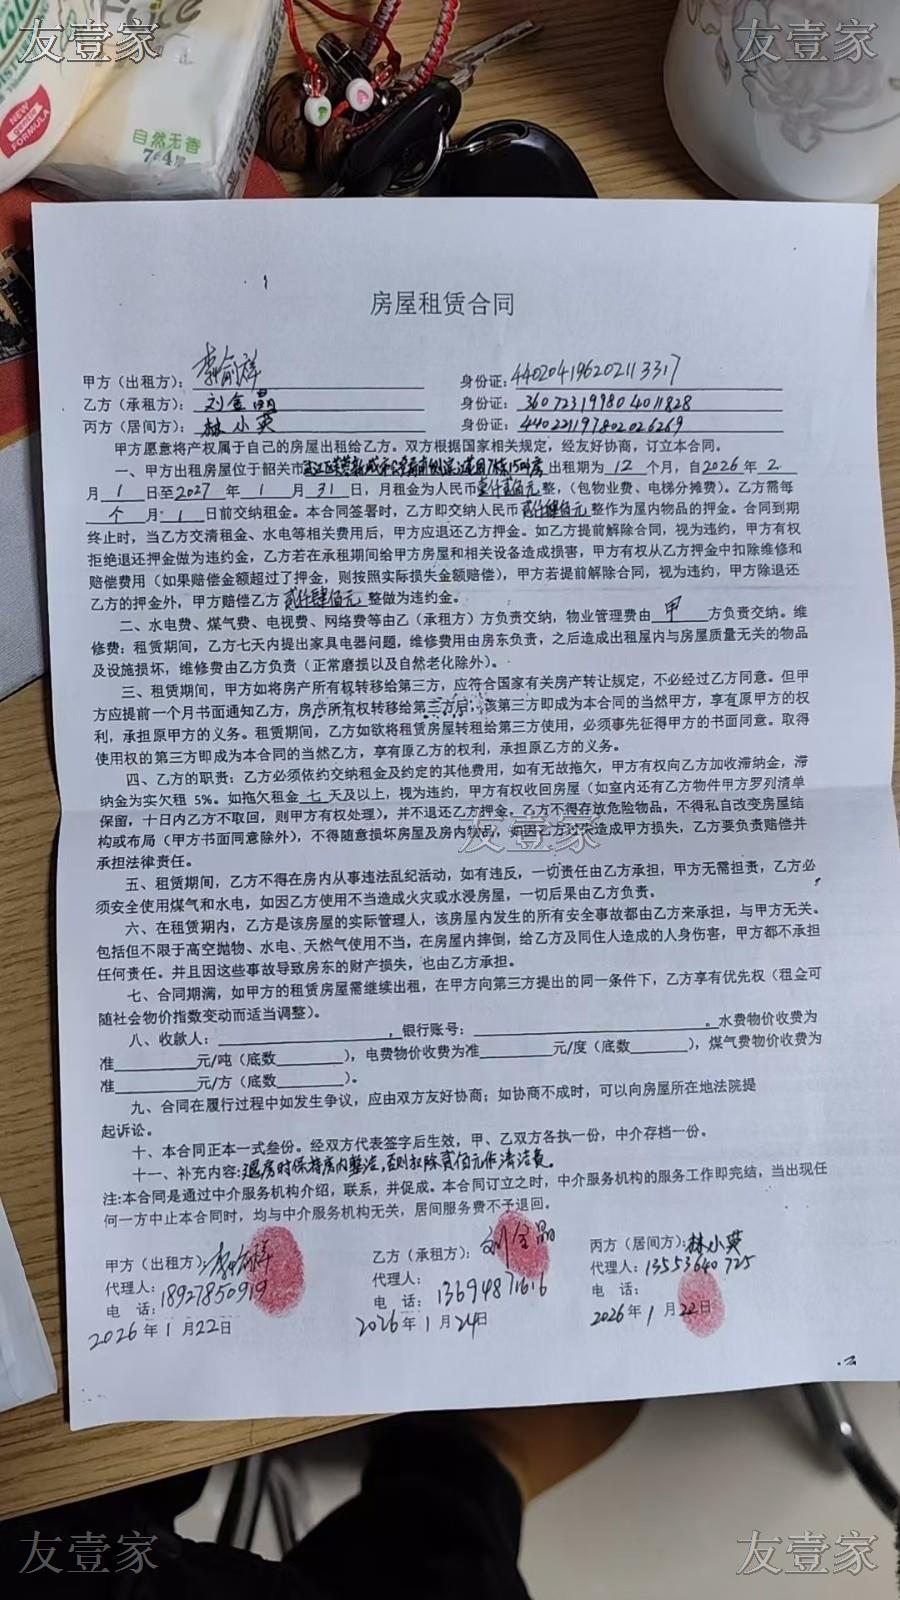 友壹家
友壹家
NEW
FORMULA
自然无香
房屋租赁合同
甲方（出租方）： 身份证：440204196202113317
乙方（承租方）：刘金晶 身份证：360723199804011828
丙方（居间方）：林小英 身份证：440221197802026269
甲方愿意将产权属于自己的房屋出租给乙方。双方根据国家相关规定，经友好协商，订立本合同。
一、甲方出租房屋位于韶关市 出租期为 12 个月，自2026年 2
月 1 日至2027 年 1 月 31 日，月租金为人民币壹仟贰佰元整，（包物业费、电梯分摊费）。乙方需每
个 月 1 日前交纳租金。本合同签署时，乙方即交纳人民币贰仟肆佰元整作为屋内物品的押金。合同到期
终止时，当乙方交清租金、水电等相关费用后，甲方应退还乙方押金。如乙方提前解除合同，视为违约，甲方有权
拒绝退还押金做为违约金，乙方若在承租期间给甲方房屋和相关设备造成损害，甲方有权从乙方押金中扣除维修和
赔偿费用（如果赔偿金额超过了押金，则按照实际损失金额赔偿），甲方若提前解除合同，视为违约，甲方除退还
乙方的押金外，甲方赔偿乙方 贰仟肆佰元 整做为违约金。
二、水电费、煤气费、电视费、网络费等由乙（承租方）方负责交纳，物业管理费由 甲 方负责交纳。维
修费：租赁期间，乙方七天内提出家具电器问题，维修费用由房东负责，之后造成出租屋内与房屋质量无关的物品
及设施损坏，维修费由乙方负责（正常磨损以及自然老化除外）。
三、租赁期间，甲方如将房产所有权转移给第三方，应符合国家有关房产转让规定，不必经过乙方同意。但甲
方应提前一个月书面通知乙方，房产所有权转移给第三方后，该第三方即成为本合同的当然甲方，享有原甲方的权
利，承担原甲方的义务。租赁期间，乙方如欲将租赁房屋转租给第三方使用，必须事先征得甲方的书面同意。取得
使用权的第三方即成为本合同的当然乙方，享有原乙方的权利，承担原乙方的义务。
四、乙方的职责：乙方必须依约交纳租金及约定的其他费用，如有无故拖欠，甲方有权向乙方加收滞纳金，滞
纳金为实欠租 5%。如拖欠租金 七 天及以上，视为违约，甲方有权收回房屋（如室内还有乙方物件甲方罗列清单
保留，十日内乙方不取回，则甲方有权处理），并不退还乙方押金。乙方不得存放危险物品，不得私自改变房屋结
构或布局（甲方书面同意除外），不得随意损坏房屋及房内物品，如因乙方过失造成甲方损失，乙方要负责赔偿并
承担法律责任。
友壹家
五、租赁期间，乙方不得在房内从事违法乱纪活动，如有违反，一切责任由乙方承担，甲方无需担责，乙方必
须安全使用煤气和水电，如因乙方使用不当造成火灾或水浸房屋，一切后果由乙方负责。
六、在租赁期内，乙方是该房屋的实际管理人，该房屋内发生的所有安全事故都由乙方来承担，与甲方无关。
包括但不限于高空抛物、水电、天然气使用不当，在房屋内摔倒，给乙方及同住人造成的人身伤害，甲方都不承担
任何责任。并且因这些事故导致房东的财产损失，也由乙方承担。
七、合同期满，如甲方的租赁房屋需继续出租，在甲方向第三方提出的同一条件下，乙方享有优先权（租金可
随社会物价指数变动而适当调整）。
八、收款人： ，银行账号： 。水费物价收费为
准 元/吨（底数 ），电费物价收费为准 元/度（底数 ），煤气费物价收费为
准 元/方（底数 ）。
九、合同在履行过程中如发生争议，应由双方友好协商；如协商不成时，可以向房屋所在地法院提
起诉讼。
十、本合同正本一式叁份。经双方代表签字后生效，甲、乙双方各执一份，中介存档一份。
十一、补充内容：退房时保持房内整洁，否则扣除贰佰元作清洁费。
注：本合同是通过中介服务机构介绍，联系，并促成。本合同订立之时，中介服务机构的服务工作即完结，当出现任
何一方中止本合同时，均与中介服务机构无关，居间服务费不予退回。
甲方（出租方）： 乙方（承租方）：刘金晶 丙方（居间方）：林小英
代理人： 代理人： 代理人：13553640725
电 话：18927850919 电 话：13694871616 电 话：
2026年1月22日 2026年1月24日 2026年1月22日
友壹家
友壹家